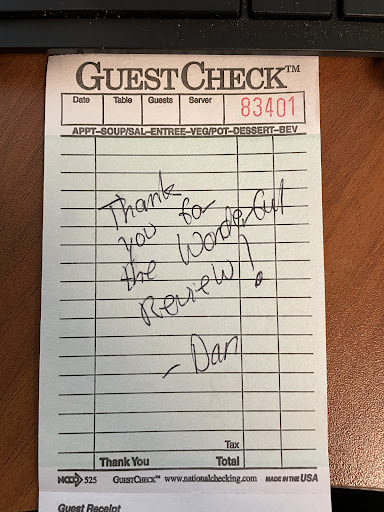 GUESTCHECK™
Date Table Guests Server 83401
APPT-SOUP/SAL-ENTREE-VEG/POT-DESSERT-BEV
Thank
you for
the Wonderful
Review!
- Dan
Tax
Thank You Total
NCCO 525 GUESTCHECK™ www.nationalchecking.com MADE IN THE USA
Guest Receipt